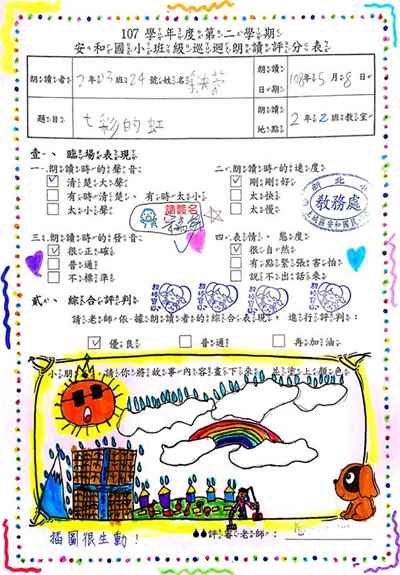 107學年度第二學期
安和國小班級巡迴朗讀評分表
朗讀者 2年13班24號姓名
朗讀日期 108年5月8日
題目 七彩的虹
朗讀地點 2年2班教室
壹、臨場表現
一、朗讀時的聲音
清楚大聲
有時清楚、有時太小
太小聲
二、朗讀時的速度
剛剛好
太快
太慢
請簽名
教務處
三、朗讀時的發音
很正確
普通
不標準
四、表情、態度
很自然
有點緊張害怕
說不出話來
貳、綜合評判
請老師依據朗讀者的綜合表現,進行評判:
優良
普通
再加油
小朋友,請你將故事內容畫下來,並塗上顏色
插圖很生動!
評審老師: